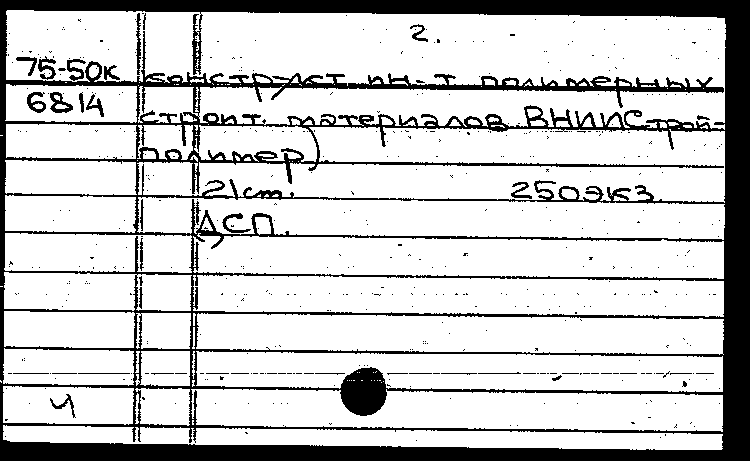 2.
75-50к конструкт. ин-т полимерных
6814 строит. материалов ВНИИСтрой-
полимер).
21 ст. 250 экз.
ДСП.
Ч